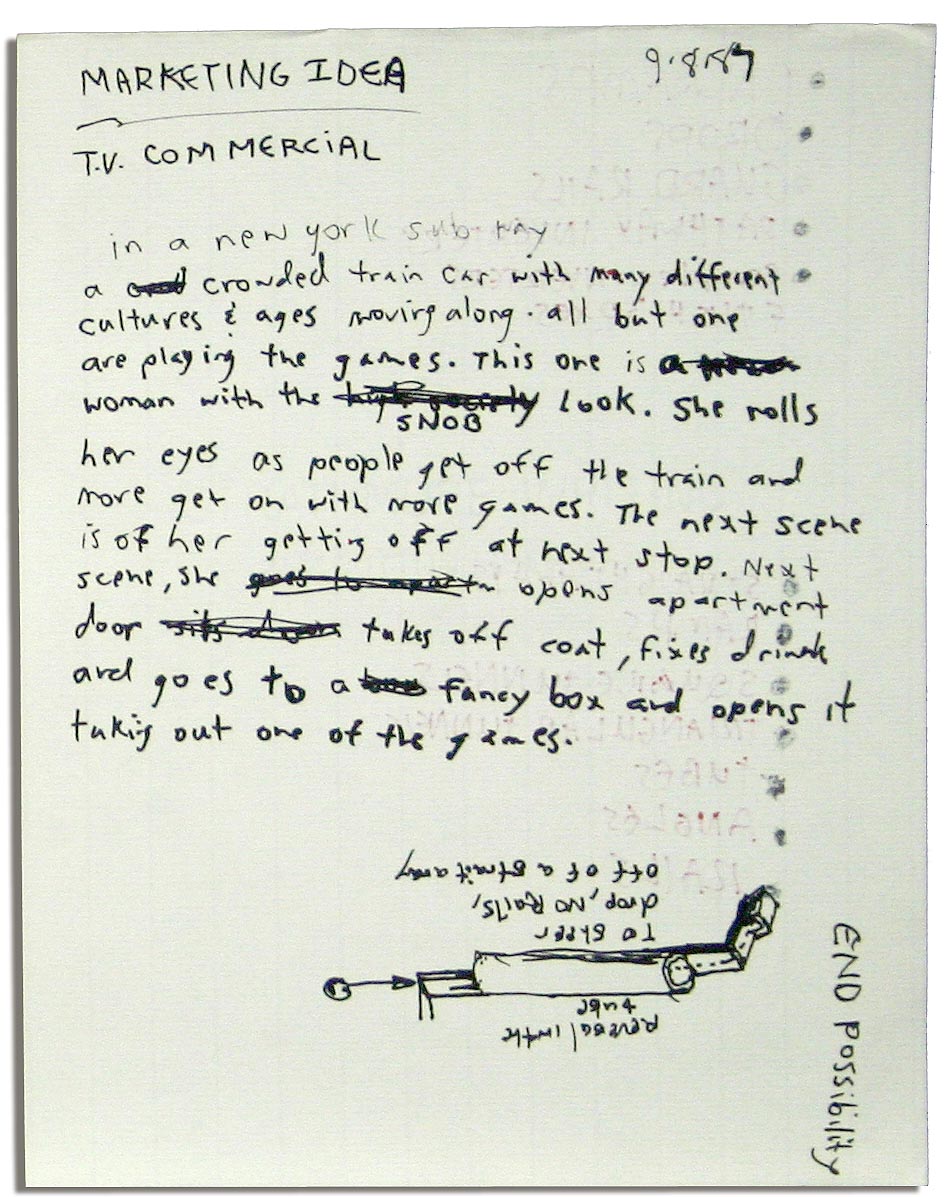 MARKETING IDEA
9.8.89
T.V. COMMERCIAL
in a new york subway
a crowded train car with many different
cultures & ages moving along. all but one
are playing the games. This one is a
woman with the SNOB look. She rolls
her eyes as people get off the train and
more get on with more games. The next scene
is of her getting off at next stop. Next
scene, she opens apartment
door takes off coat, fixes drink
and goes to a fancy box and opens it
taking out one of the games.
reveal in the
tube
TO
drop, NO Rails,
off of a strait away
END POSSIBILITY
TUBES
ANGLES